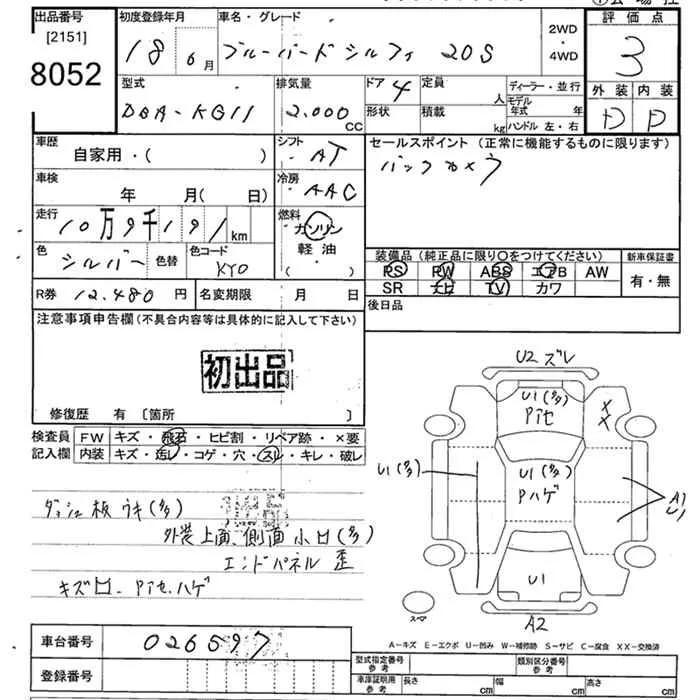 出品番号
[2151]
8052
初度登録年月
18 6月
車名・グレード
ブルーバードシルフィ 20S
2WD
・
4WD
評価点
3
型式
DBA-KG11
排気量
2.000
CC
ドア 4
形状
定員
人
積載
kg
ディーラー・並行
モデル
年式 年
ハンドル 左・右
外装 内装
D D
車歴
自家用・( )
シフト
AT
セールスポイント (正常に機能するものに限ります)
バックカメラ
車検
年 月( 日)
冷房
AAC
走行
10万9千191km
燃料
ガソリン
軽油
( )
色
シルバー
色替
色コード
KYO
装備品 (純正品に限り○をつけてください)
新車保証書
PS PW ABS エアB AW
SR ナビ TV カワ
有・無
R券 12.480円
名変期限 月 日
後日品
注意事項申告欄(不具合内容等は具体的に記入して下さい)
初出品
修復歴 有 〔箇所 〕
検査員
記入欄
FW キズ・飛石・ヒビ割・リペア跡・×要
内装 キズ・汚レ・コゲ・穴・スレ・キレ・破レ
ダッシュ板ウキ(多)
外装上面、側面 小凹(多)
エンドパネル 歪
キズ凹、Pセ、ハゲ
U2 ズレ
U1(多)
Pセ
××
U1(多)
U1(多)
Pハゲ
A1
U1
U1
スマ
A2
車台番号
026597
登録番号
A-キズ E-エクボ U-凹み W-補修跡 S-サビ C-腐食 XX-交換済
型式指定番号
参考
類別区分番号
参考
車庫証明用
参考
長さ cm
幅 cm
高さ cm